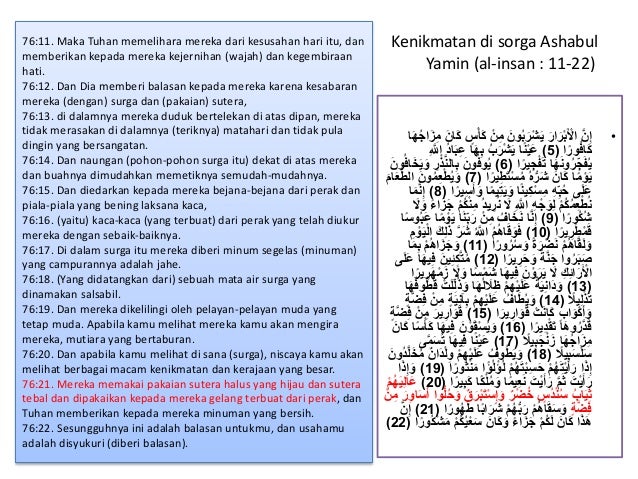 Kenikmatan di sorga Ashabul
Yamin (al-insan : 11-22)
76:11. Maka Tuhan memelihara mereka dari kesusahan hari itu, dan
memberikan kepada mereka kejernihan (wajah) dan kegembiraan
hati.
76:12. Dan Dia memberi balasan kepada mereka karena kesabaran
mereka (dengan) surga dan (pakaian) sutera,
76:13. di dalamnya mereka duduk bertelekan di atas dipan, mereka
tidak merasakan di dalamnya (teriknya) matahari dan tidak pula
dingin yang bersangatan.
76:14. Dan naungan (pohon-pohon surga itu) dekat di atas mereka
dan buahnya dimudahkan memetiknya semudah-mudahnya.
76:15. Dan diedarkan kepada mereka bejana-bejana dari perak dan
piala-piala yang bening laksana kaca,
76:16. (yaitu) kaca-kaca (yang terbuat) dari perak yang telah diukur
mereka dengan sebaik-baiknya.
76:17. Di dalam surga itu mereka diberi minum segelas (minuman)
yang campurannya adalah jahe.
76:18. (Yang didatangkan dari) sebuah mata air surga yang
dinamakan salsabil.
76:19. Dan mereka dikelilingi oleh pelayan-pelayan muda yang
tetap muda. Apabila kamu melihat mereka kamu akan mengira
mereka, mutiara yang bertaburan.
76:20. Dan apabila kamu melihat di sana (surga), niscaya kamu akan
melihat berbagai macam kenikmatan dan kerajaan yang besar.
76:21. Mereka memakai pakaian sutera halus yang hijau dan sutera
tebal dan dipakaikan kepada mereka gelang terbuat dari perak, dan
Tuhan memberikan kepada mereka minuman yang bersih.
76:22. Sesungguhnya ini adalah balasan untukmu, dan usahamu
adalah disyukuri (diberi balasan).
• إِنَّ الْأَبْرَارَ يَشْرَبُونَ مِنْ كَأْسٍ كَانَ مِزَاجُهَا
كَافُورًا (5) عَيْنًا يَشْرَبُ بِهَا عِبَادُ اللَّهِ
يُفَجِّرُونَهَا تَفْجِيرًا (6) يُوفُونَ بِالنَّذْرِ وَيَخَافُونَ
يَوْمًا كَانَ شَرُّهُ مُسْتَطِيرًا (7) وَيُطْعِمُونَ الطَّعَامَ
عَلَى حُبِّهِ مِسْكِينًا وَيَتِيمًا وَأَسِيرًا (8) إِنَّمَا
نُطْعِمُكُمْ لِوَجْهِ اللَّهِ لَا نُرِيدُ مِنْكُمْ جَزَاءً وَلَا
شُكُورًا (9) إِنَّا نَخَافُ مِنْ رَبِّنَا يَوْمًا عَبُوسًا
قَمْطَرِيرًا (10) فَوَقَاهُمُ اللَّهُ شَرَّ ذَلِكَ الْيَوْمِ
وَلَقَّاهُمْ نَضْرَةً وَسُرُورًا (11) وَجَزَاهُمْ بِمَا
صَبَرُوا جَنَّةً وَحَرِيرًا (12) مُتَّكِئِينَ فِيهَا عَلَى
الْأَرَائِكِ لَا يَرَوْنَ فِيهَا شَمْسًا وَلَا زَمْهَرِيرًا
(13) وَدَانِيَةً عَلَيْهِمْ ظِلَالُهَا وَذُلِّلَتْ قُطُوفُهَا
تَذْلِيلًا (14) وَيُطَافُ عَلَيْهِمْ بِآنِيَةٍ مِنْ فِضَّةٍ
وَأَكْوَابٍ كَانَتْ قَوَارِيرَا (15) قَوَارِيرَ مِنْ فِضَّةٍ
قَدَّرُوهَا تَقْدِيرًا (16) وَيُسْقَوْنَ فِيهَا كَأْسًا كَانَ
مِزَاجُهَا زَنْجَبِيلًا (17) عَيْنًا فِيهَا تُسَمَّى
سَلْسَبِيلًا (18) وَيَطُوفُ عَلَيْهِمْ وِلْدَانٌ مُخَلَّدُونَ
إِذَا رَأَيْتَهُمْ حَسِبْتَهُمْ لُؤْلُؤًا مَنْثُورًا (19) وَإِذَا
رَأَيْتَ ثَمَّ رَأَيْتَ نَعِيمًا وَمُلْكًا كَبِيرًا (20) عَالِيَهُمْ
ثِيَابُ سُنْدُسٍ خُضْرٌ وَإِسْتَبْرَقٌ وَحُلُّوا أَسَاوِرَ مِنْ
فِضَّةٍ وَسَقَاهُمْ رَبُّهُمْ شَرَابًا طَهُورًا (21) إِنَّ
هَذَا كَانَ لَكُمْ جَزَاءً وَكَانَ سَعْيُكُمْ مَشْكُورًا (22)